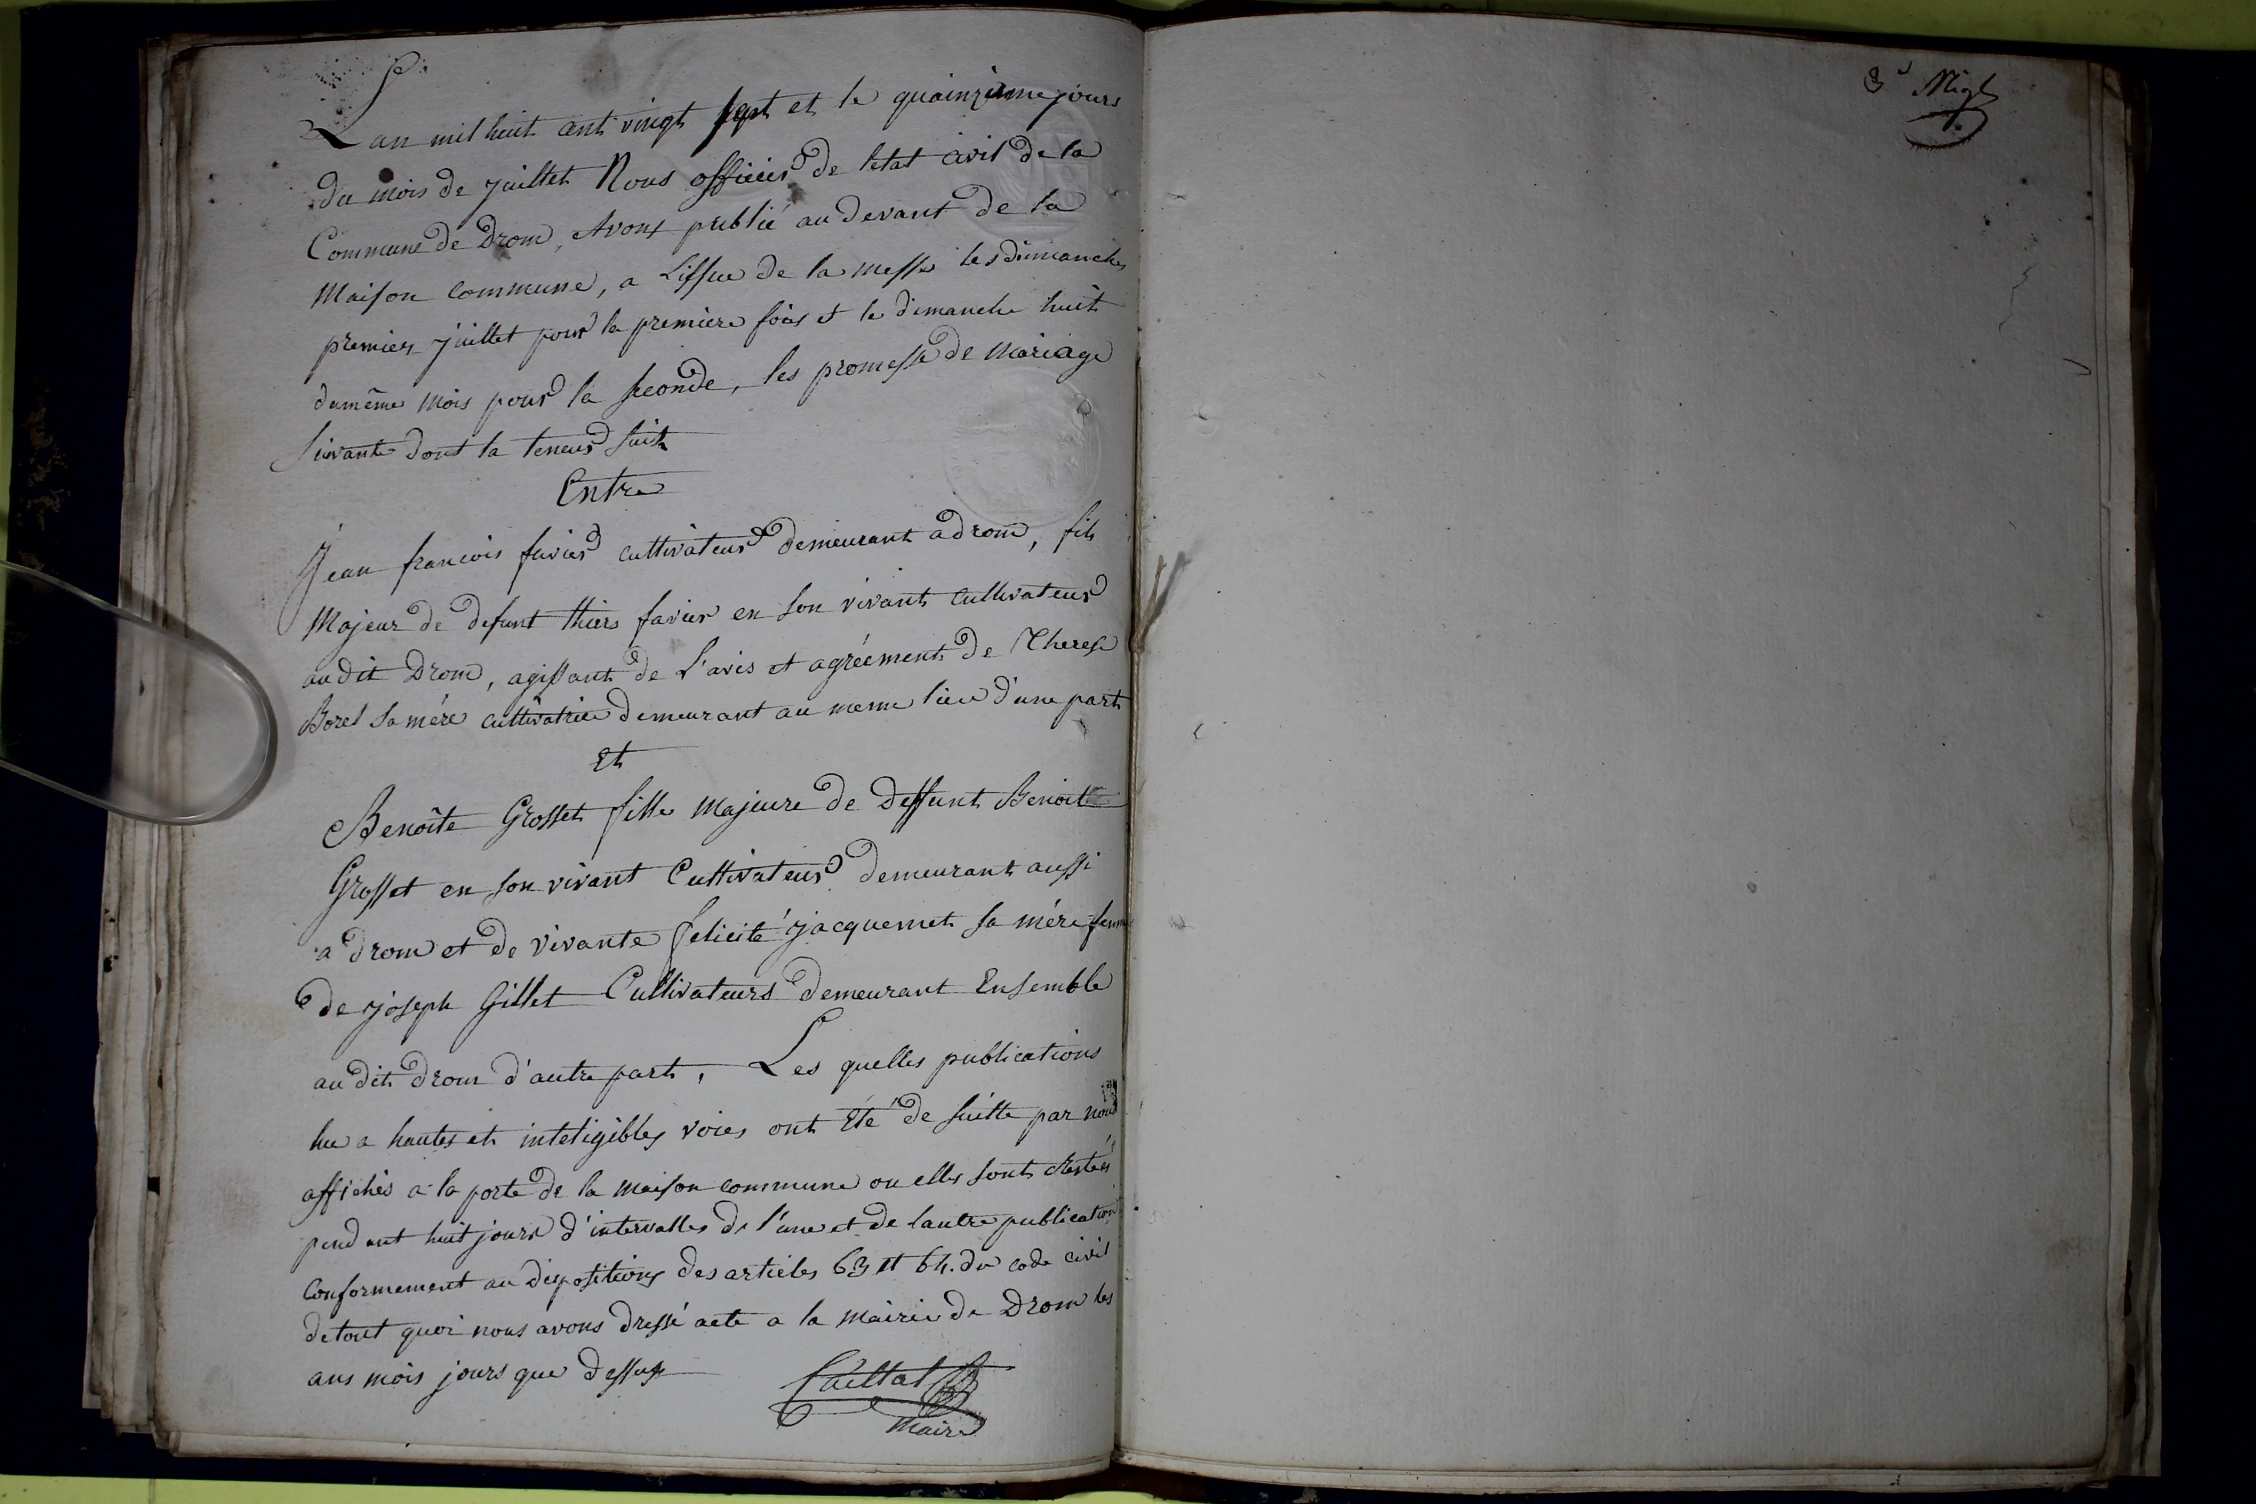 L'an mil huit cent vingt sept et le quainzieme jours
du mois de juillet Nous officier de l'etat civil de la
Commune de Drom, Avons publié au devant de la
Maison commune, a L'issue de la messe les dimanches
premier juillet pour la premiere fois et le dimanche huit
dumême mois pour la seconde, les promesse de mariage
suivante dont la teneur suit
Entre
Jean francois favier cultivateur demeurant a drom, fils
Majeur de defunt thiers favier en son vivant cultivateur
audit Drom, agissant de L'avis et agréement de Therese
Borel sa mére cultivatrice demeurant au meme lieu d'une part
Et
Benoîte Grosset fille majeure de deffunt Benoit
Grosset en son vivant Cultivateur demeurant aussi
a drom et de vivante felicité jacquemet sa mére femme
de joseph Gillet Cultivateurs demeurant Ensemble
au dit drom d'autre part, Les quelles publications
lue a hautes et inteligibles voies ont Eté de suitte par nous
affichés a la porte de la maison commune ou elles sont restés
pendant huit jours d'intervalles de l'une et de lautre publication
conformement au dispositions des articles 63 et 64. du code civil
detout quoi nous avons dressé acte a la mairie de Drom les
ans mois jours que dessus
Caillat
Maire